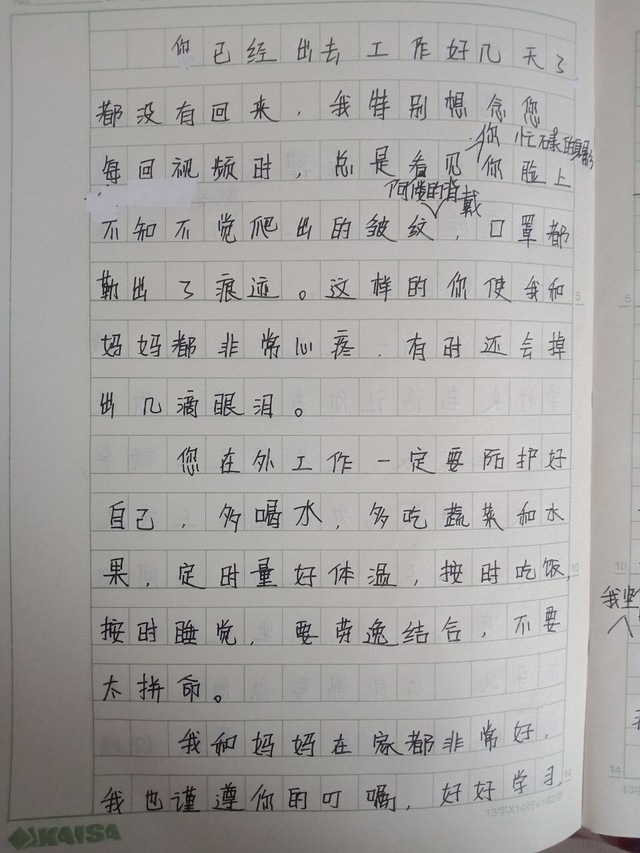 你已经出去工作好几天了
都没有回来，我特别想念您
你 忙碌的身影
每回视频时，总是看见你脸上
阿伯的背 戴
不知不觉爬出的皱纹，口罩都
勒出了痕迹。这样的你使我和
妈妈都非常心疼，有时还会掉
出几滴眼泪。
您在外工作一定要防护好
自己，多喝水，多吃蔬菜和水
果，定时量好体温，按时吃饭，
按时睡觉，要劳逸结合，不要
太拼命。
我和妈妈在家都非常好，
我也谨遵你的叮嘱，好好学习
我坚
5
10
14
5
10
14
13字X14行=182字
KAISA